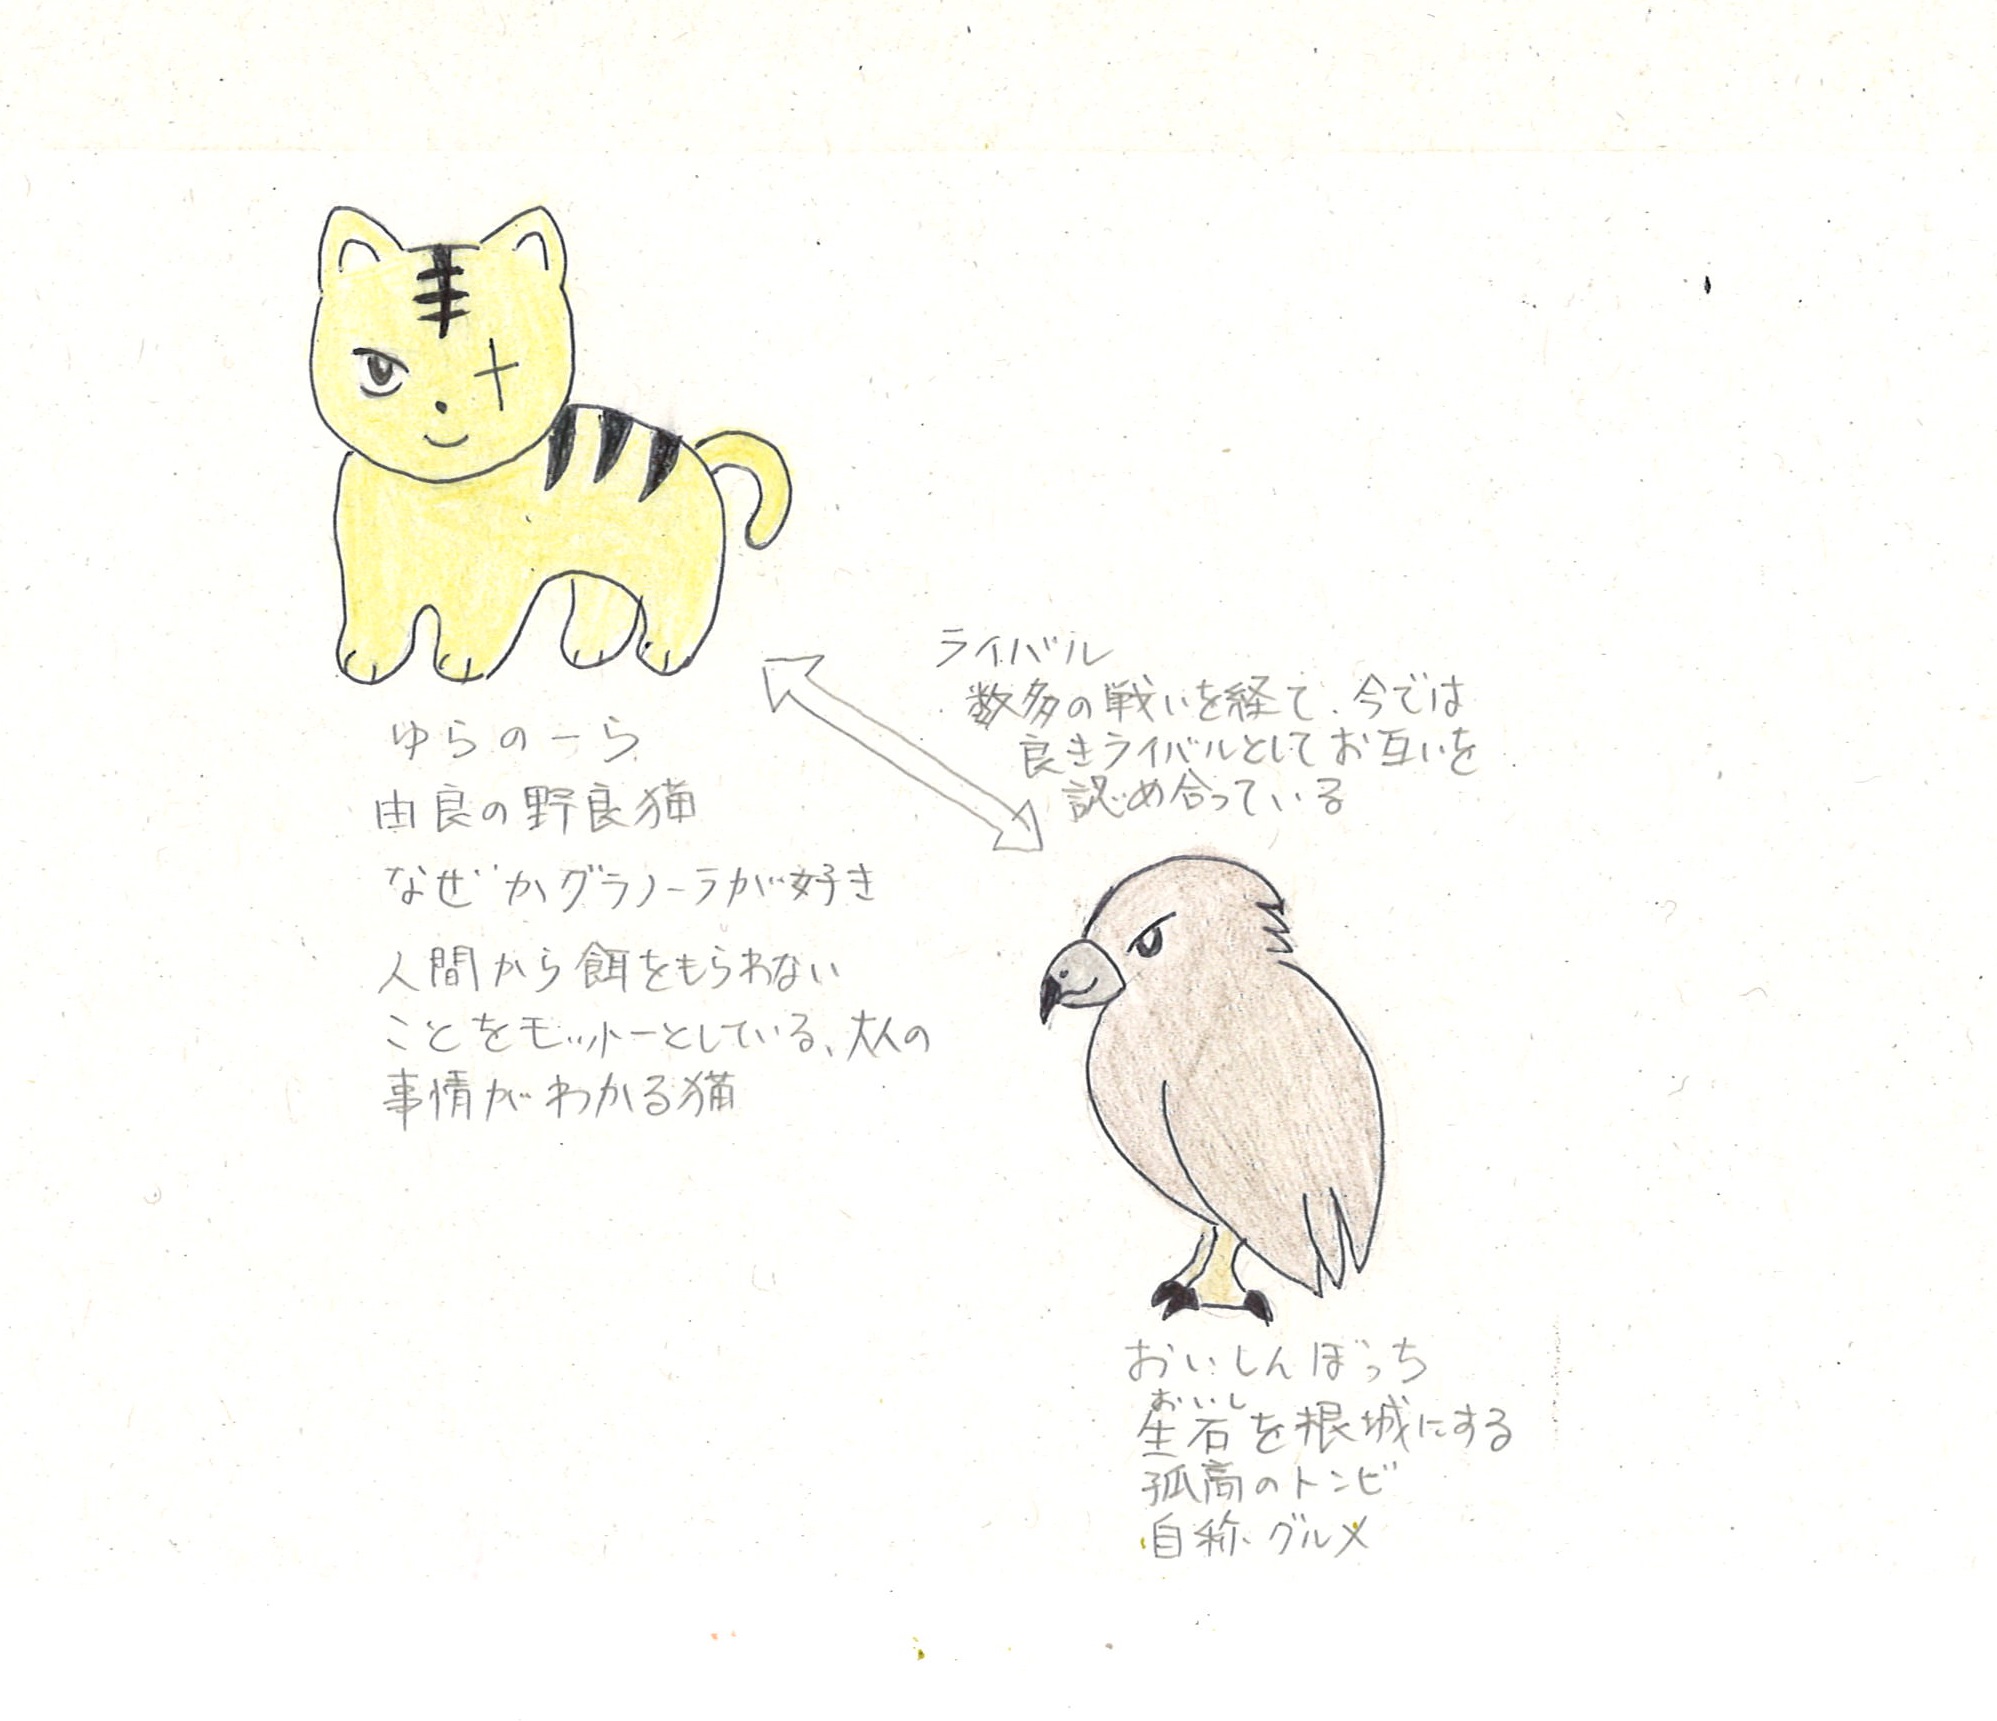 ゆらのーら
由良の野良猫
なぜかグラノーラが好き
人間から餌をもらわない
ことをモットーとしている、大人の
事情がわかる猫
ライバル
数多の戦いを経て、今では
良きライバルとしてお互いを
認め合っている
おいしんぼっち
おいし
生石を根城にする
孤高のトンビ
自称グルメ